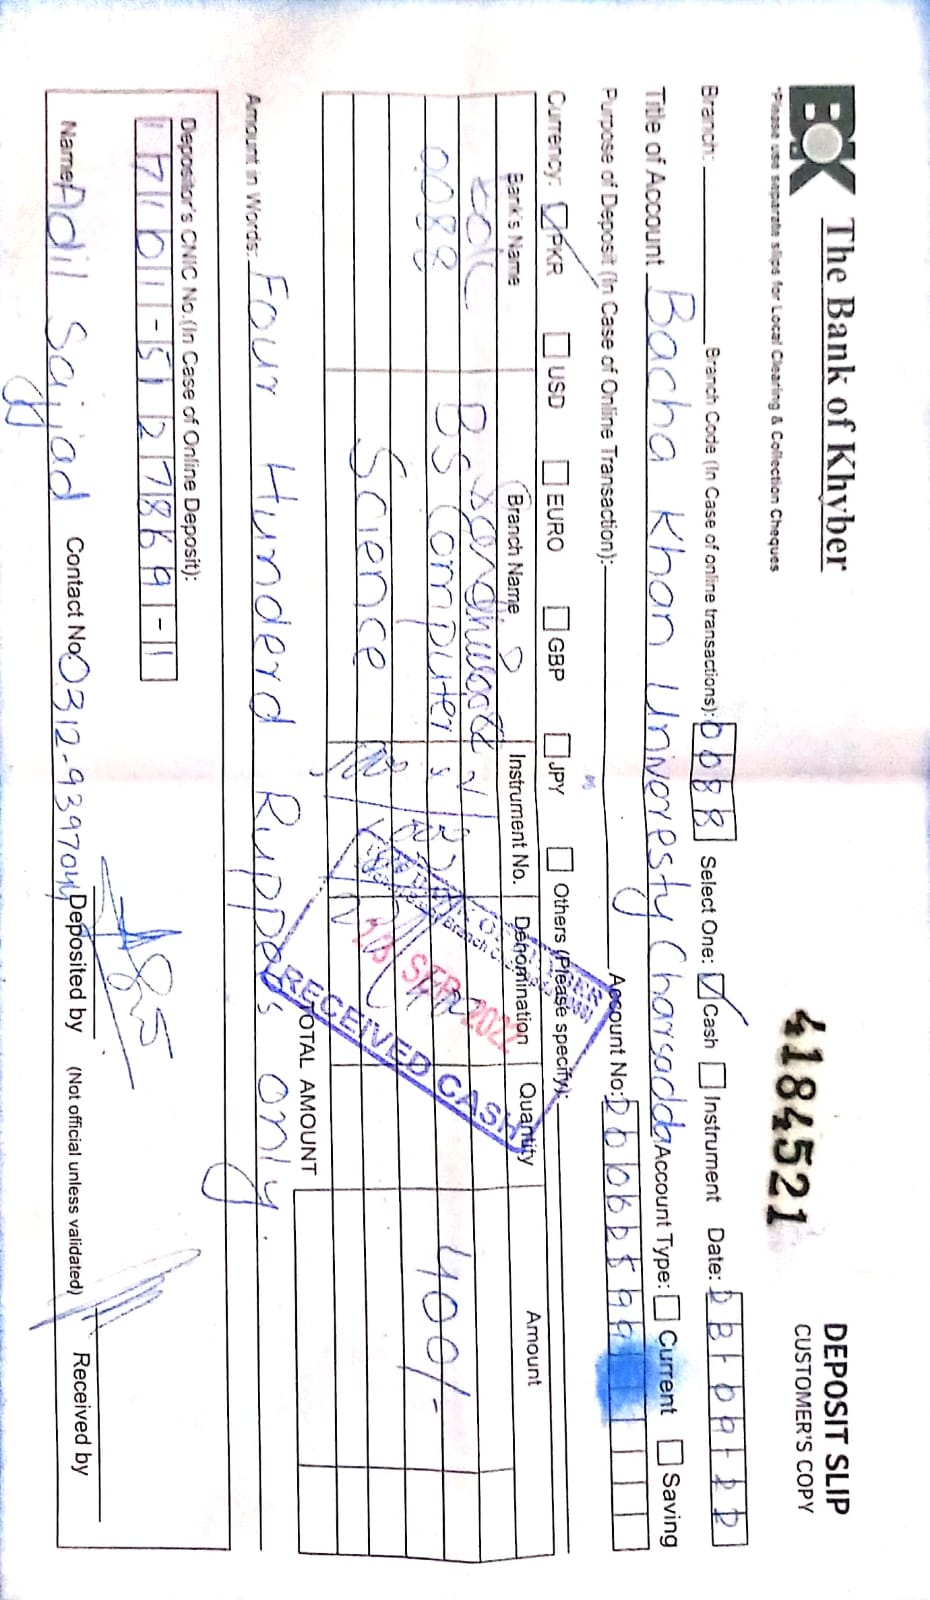 BOK The Bank of Khyber
DEPOSIT SLIP
CUSTOMER'S COPY
*Please use separate slips for Local Clearing & Collection Cheques
4184521
Branch: Branch Code (In Case of online transactions): 0088 Select One: Cash Instrument Date:
Title of Account Bacha Khan Univeresty Charsadda Account Type: Current Saving
Purpose of Deposit (In Case of Online Transaction): Account No:
Currency: PKR USD EURO GBP JPY Others (Please specify):
Bank's Name Branch Name Instrument No. Denomination Quantity Amount
0088 BS Computer 400/-
Science
TOTAL AMOUNT
SEP 2022
RECEIVED CASH
Amount in Words: Four Hunderd Ruppees only.
Depositor's CNIC No.(In Case of Online Deposit):
Name: Adil Sajjad Contact No 0312-9397044 Deposited by (Not official unless validated) Received by